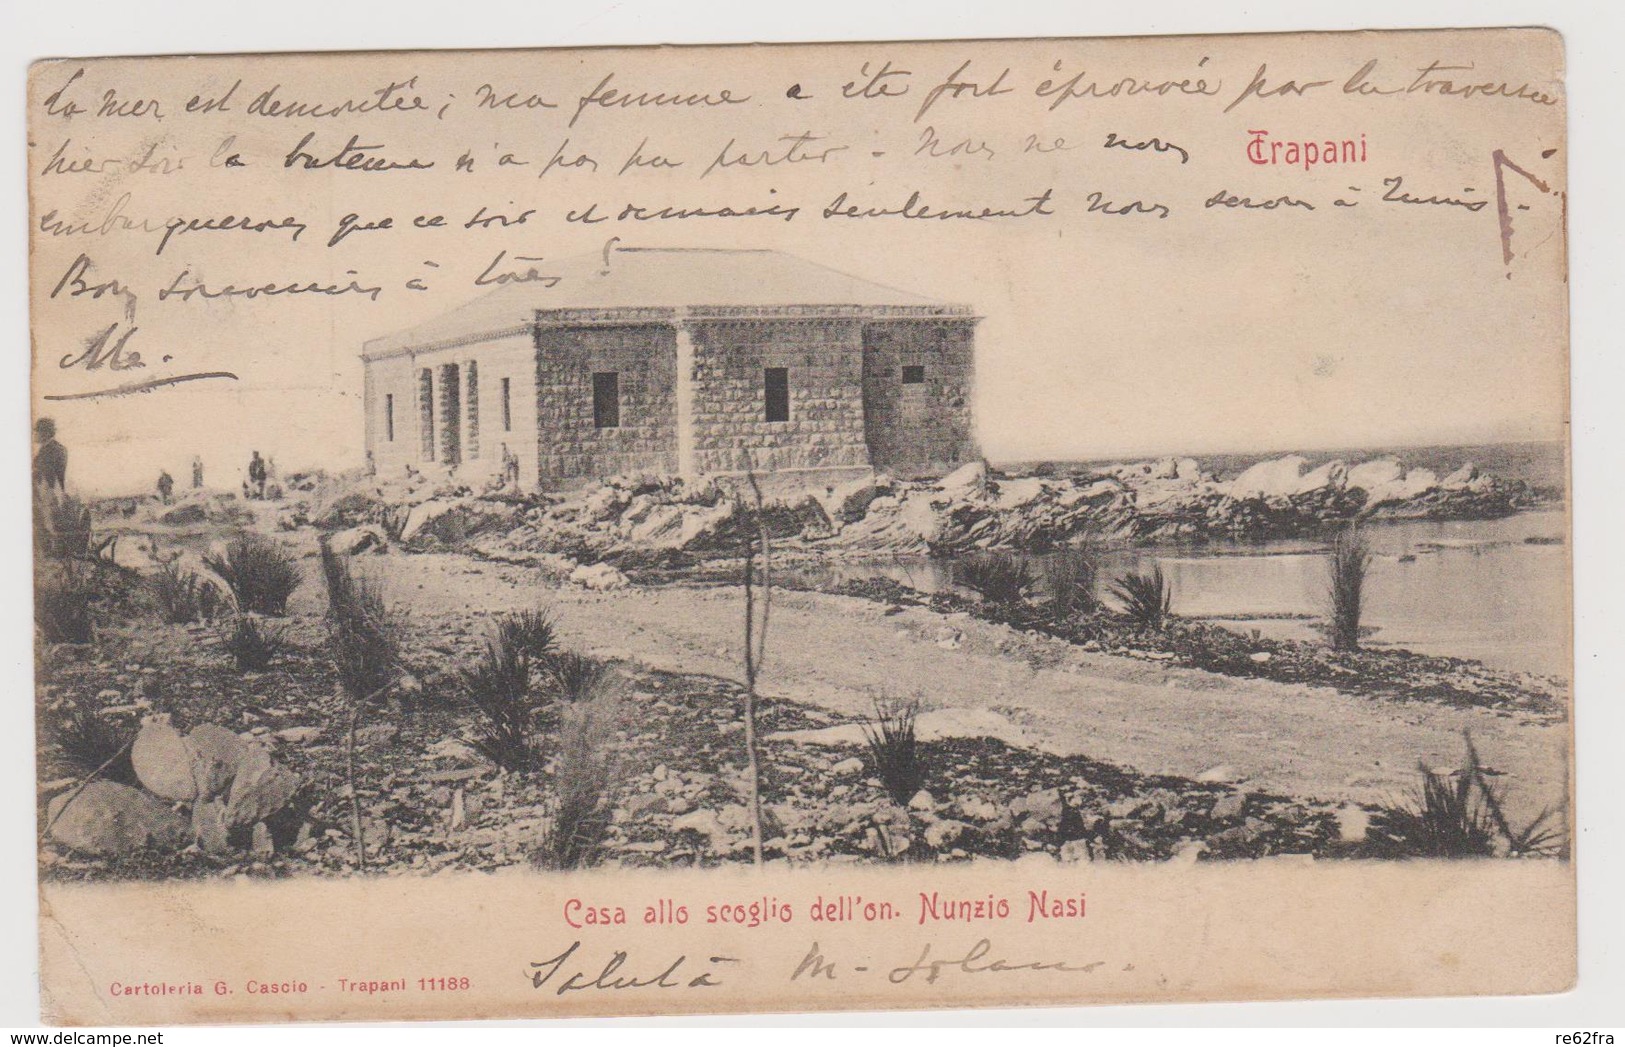 La mer est demontée ; ma femme a été fort éprouvée par la traversée
hier soir la bateau n'a pas pu partir - Nous ne nous
embarquerons que ce soir et demain seulement nous serons à Tunis -
Bons souvenirs à tous !
Trapani
Casa allo scoglio dell'on. Nunzio Nasi
Saluti à M - Solano.
Cartoleria G. Cascio - Trapani 11188
www.delcampe.net
re62fra